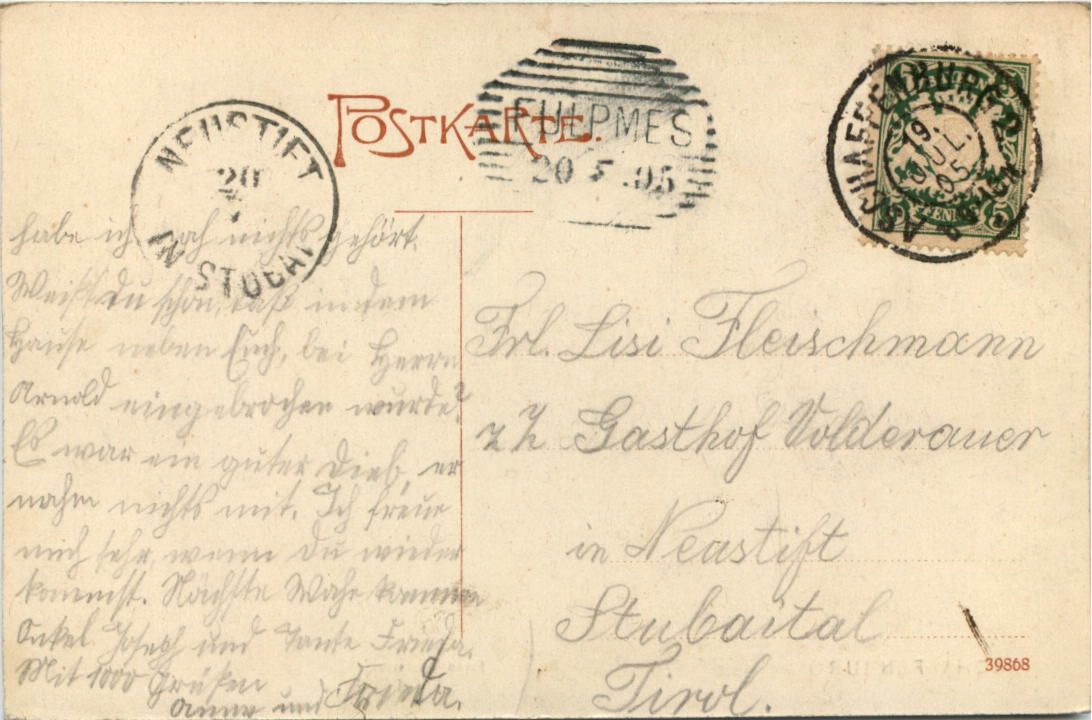 POSTKARTE.
NEUSTIFT
20
IN STUBAI
FULPMES
20 5 .05
ASCHAFFENBURG 2.
19 JUL 05
habe ich noch nichts gehört.
Weißt Du schon, daß in dem
Hause neben Euch, bei Herrn
Arnold eingebrochen wurde?
Es war ein guter Dieb, er
nahm nichts mit. Ich freue
mich sehr, wenn Du wieder
kommst. Nächste Woche kommen
Onkel Joseph und Tante Frieda.
Mit 1000 Grüßen
Anna und Frieda.
Frl. Lisi Fleischmann
z Z Gasthof Volderauer
in Neustift
Stubaital
Tirol.
39868